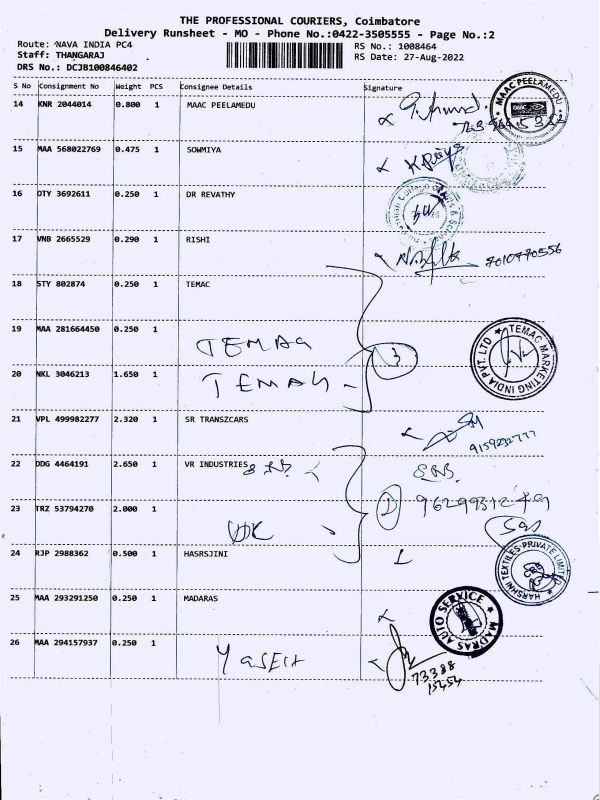 THE PROFESSIONAL COURIERS, Coimbatore
Delivery Runsheet - MO - Phone No.:0422-3505555 - Page No.:2
Route: NAVA INDIA PC4 RS No.: 1008464
Staff: THANGARAJ RS Date: 27-Aug-2022
DRS No.: DCJB100846402
S No Consignment No Weight PCS Consignee Details Signature
14 KNR 2044014 0.800 1 MAAC PEELAMEDU
MAAC PEELAMEDU
15 MAA 568022769 0.475 1 SOWMIYA
16 DTY 3692611 0.250 1 DR REVATHY
17 VNB 2665529 0.290 1 RISHI
7010770556
18 STY 802874 0.250 1 TEMAC
19 MAA 281664450 0.250 1
TEMAC
TEMAC MARKETING INDIA PVT. LTD
3
20 NKL 3046213 1.650 1
21 VPL 499982277 2.320 1 SR TRANSZCARS
9159232777
22 DDG 4464191 2.650 1 VR INDUSTRIES
23 TRZ 53794270 2.000 1
24 RJP 2988362 0.500 1 HASRSJINI
HARSHNI TEXTILES PRIVATE LIMITED
25 MAA 293291250 0.250 1 MADARAS
MADRAS AUTO SERVICE
26 MAA 294157937 0.250 1
73388
15454